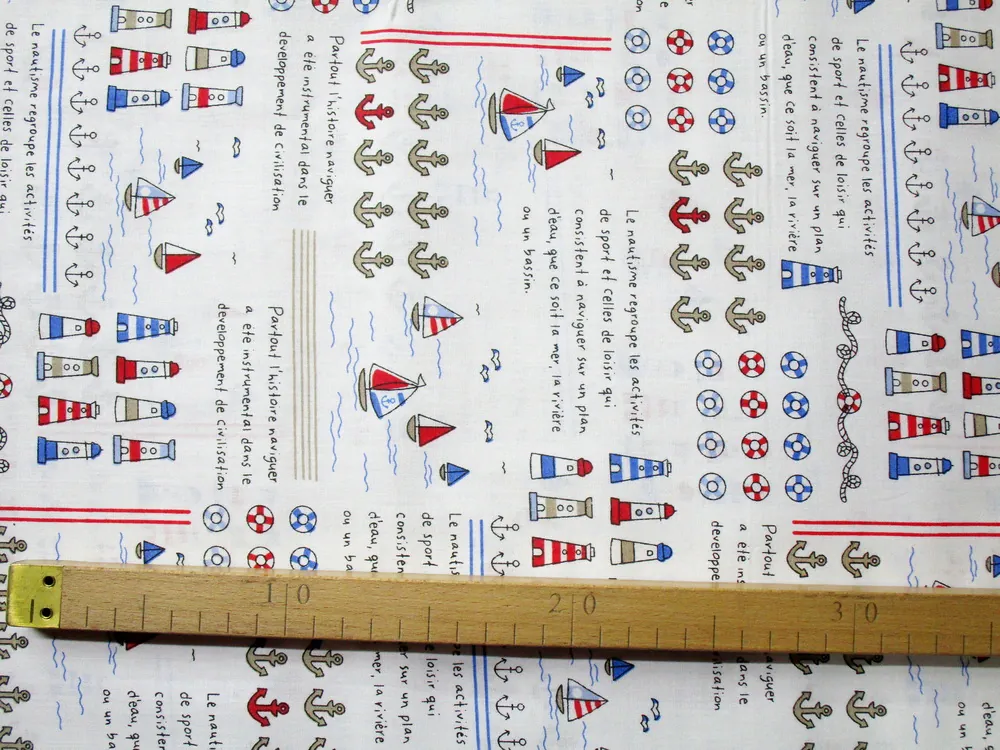 Le nautisme regroupe les activités
de sport et celles de loisir qui
Partout l'histoire naviguer
a été instrumental dans le
developpement de civilisation
Le nautisme regroupe les activités
de sport et celles de loisir qui
consistent à naviguer sur un plan
d'eau, que ce soit la mer, la rivière
ou un bassin.
Partout l'histoire naviguer
a été instrumental dans le
developpement de civilisation
Le nautisme regroupe les activités
de sport et celles de loisir qui
consistent à naviguer sur un plan
d'eau, que ce soit la mer, la rivière
ou un bassin.
Le nautis
de sport
consisten
d'eau, qu
ou un ba
les activités
loisir qui
er sur un plan
mer, la rivière
Partout
a été ins
developpe
naviguer
dans le
ilisation
10 20 30
Le nauti
de sport
consisten
d'eau, qu
ou un ba
d'eau,
ou un